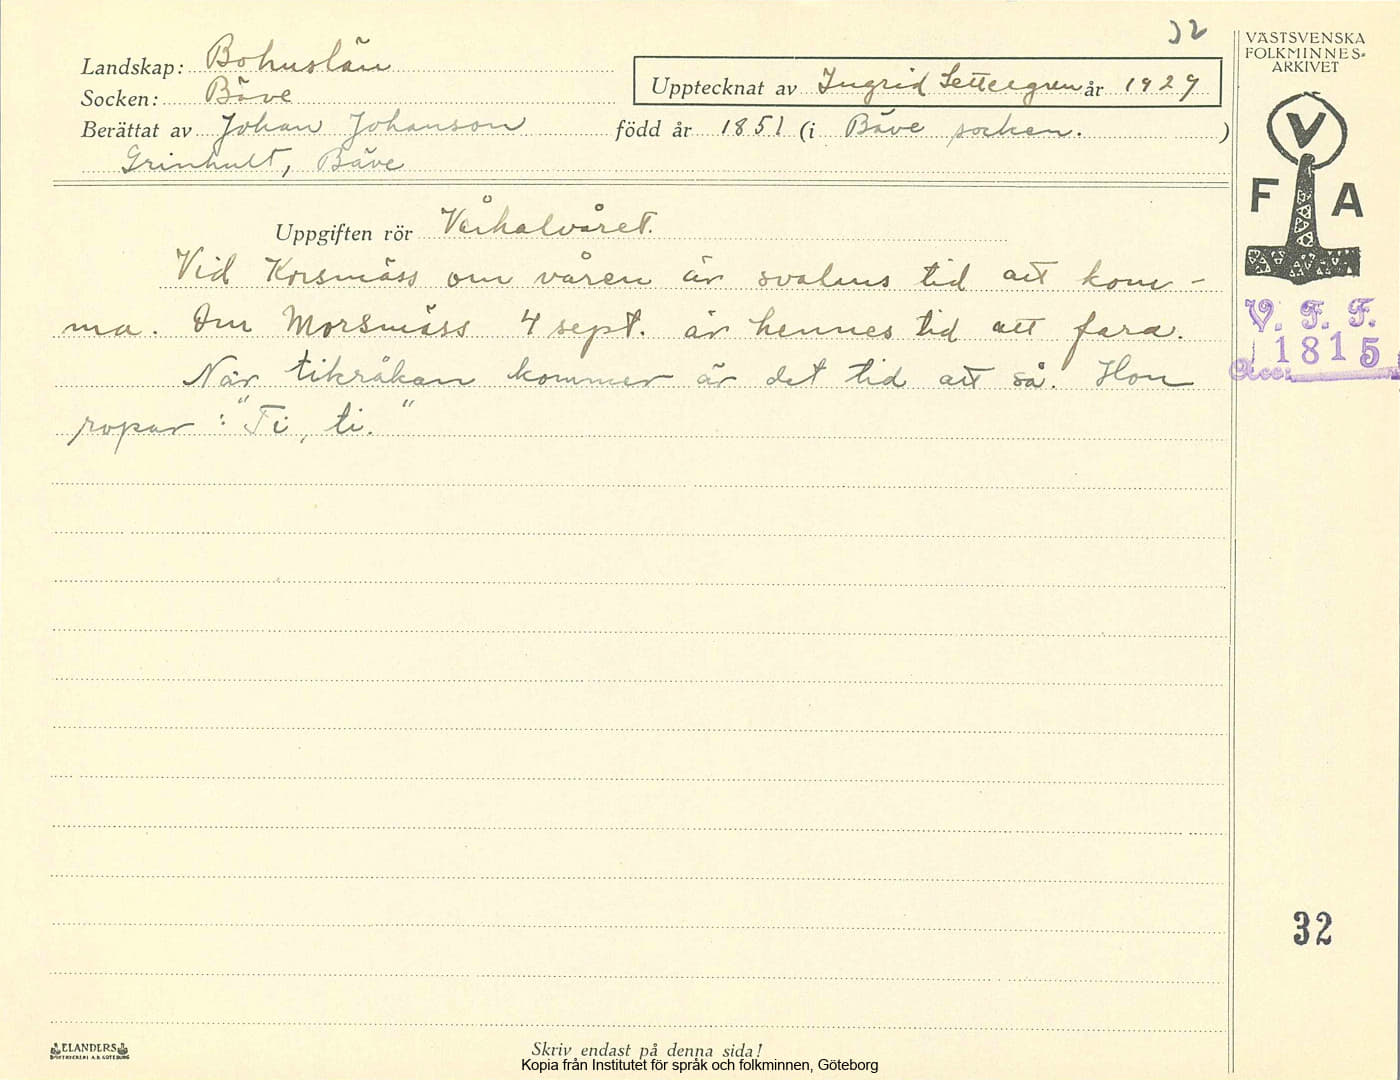 32
VÄSTSVENSKA
FOLKMINNES-
ARKIVET
Landskap: Bohuslän
Socken: Bäve
Upptecknat av Ingrid Settergren år 1929
Berättat av Johan Johanson född år 1851 (i Bäve socken.)
Grinhult, Bäve
V
F A
Uppgiften rör Vårhalvåret.
Vid Korsmäss om våren är svalans tid att kom-
ma. Om Morsmäss 4 sept. är hennes tid att fara.
När tikråkan kommer är det tid att så. Hon
ropar: "Ti, ti."
V. F. F.
1815
Acc:
32
ELANDERS
BOKTRYCKERI A.B. GÖTEBORG
Skriv endast på denna sida!
Kopia från Institutet för språk och folkminnen, Göteborg